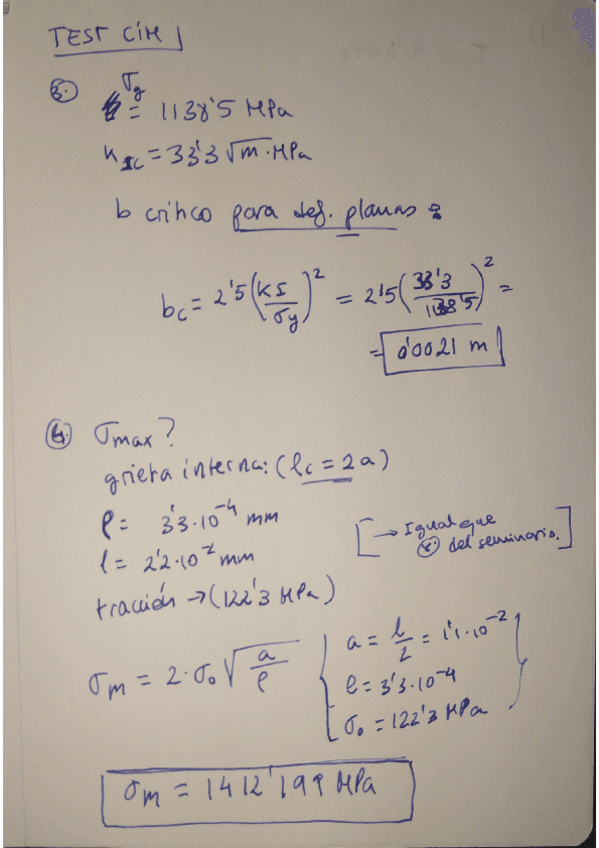 TEST CIM 1
3. σy = 1138'5 MPa
K IC = 33'3 √m · MPa
b crítico para def. planas :
bc = 2'5 (KI / σy)² = 2'5 (33'3 / 1138'5)² =
= 0'0021 m
4. σmax ?
grieta interna: (lc = 2a)
ρ = 3'3·10⁻⁴ mm
l = 2'2·10⁻² mm
[→ Igual que
8. del seminario.]
tracción → (122'3 MPa)
σm = 2·σ₀ √(a / ρ)
a = l / 2 = 1'1·10⁻²
ρ = 3'3·10⁻⁴
σ₀ = 122'3 MPa
σm = 1412'199 MPa